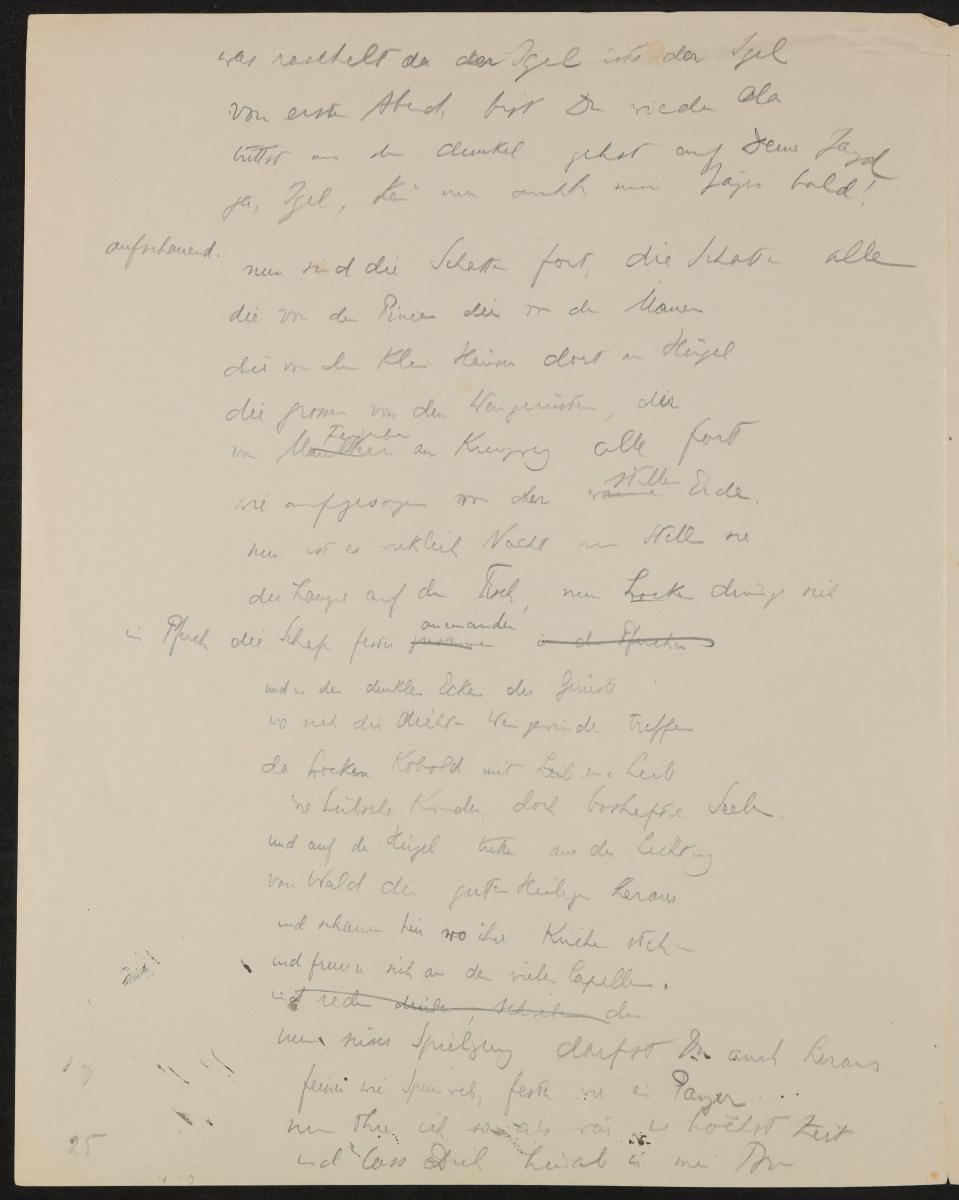 was raschelt da der Igel ists der Igel
vom ersten Abend, bist Du wieder da
trittst aus dem dunkel gehst auf Deine Jagd
ja, Igel, nun mein Jäger bald!
aufschauend.
nun sind die Schatten fort, die Schatten alle
die von den Pinien die von der Mauer
die von den kleinen Häusern dort am Hügel
die grossen von den Weingerüsten, die
vom Feigenbaum am Kreuzweg alle fort
wie aufgesogen von der stillen Erde.
nun ist es wirklich Nacht nun stellen sie
die Lampe auf den Tisch, nun drängen sich
im Pferch die Schafe fester aneinander
und in den dunklen Ecken der Gerüste
wo sich die dichten Weingewinde treffen
da hocken Kobolde mit Leib
wie hübsche Kinder, doch boshafte Seelen.
und auf den Hügeln treten aus der Lichtung
vom Wald die guten Heiligen heraus
und schauen hin wo ihre Kirchen stehen
und freuen sich an den vielen Capellen.
und reden
nun süsses Spielzeug darfst Du auch heraus
feiner wie Spinnweb, fester wie ein Panzer...
nun thu ich so als wär höchste Zeit
und lass Dich herab in
25